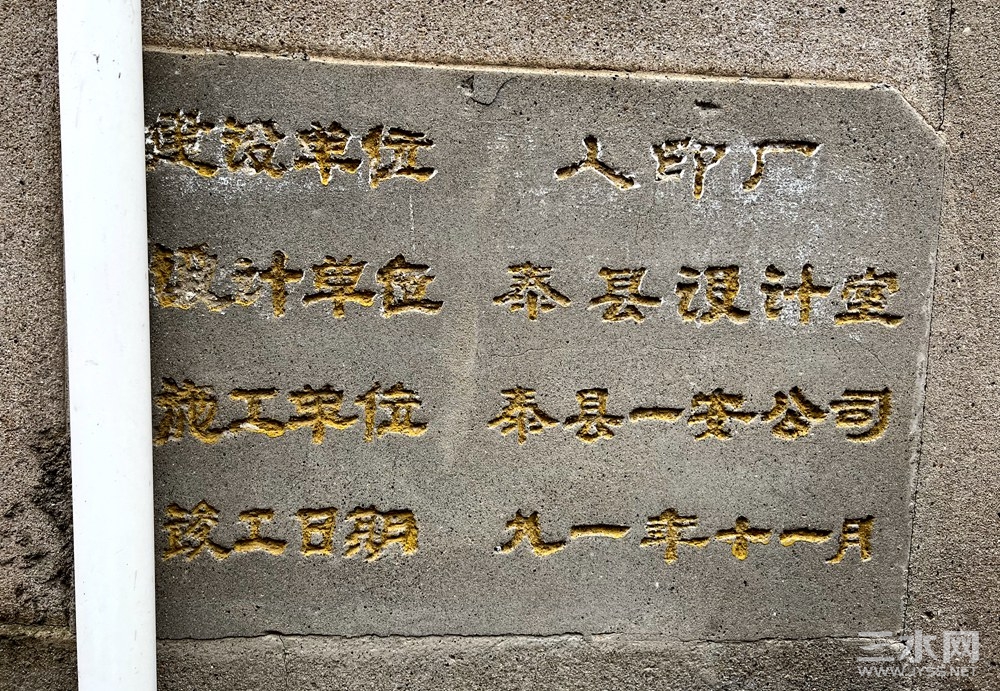 建设单位 人印厂
设计单位 泰县设计室
施工单位 泰县一安公司
竣工日期 九一年十一月
三水网
WWW.JYSS.NET